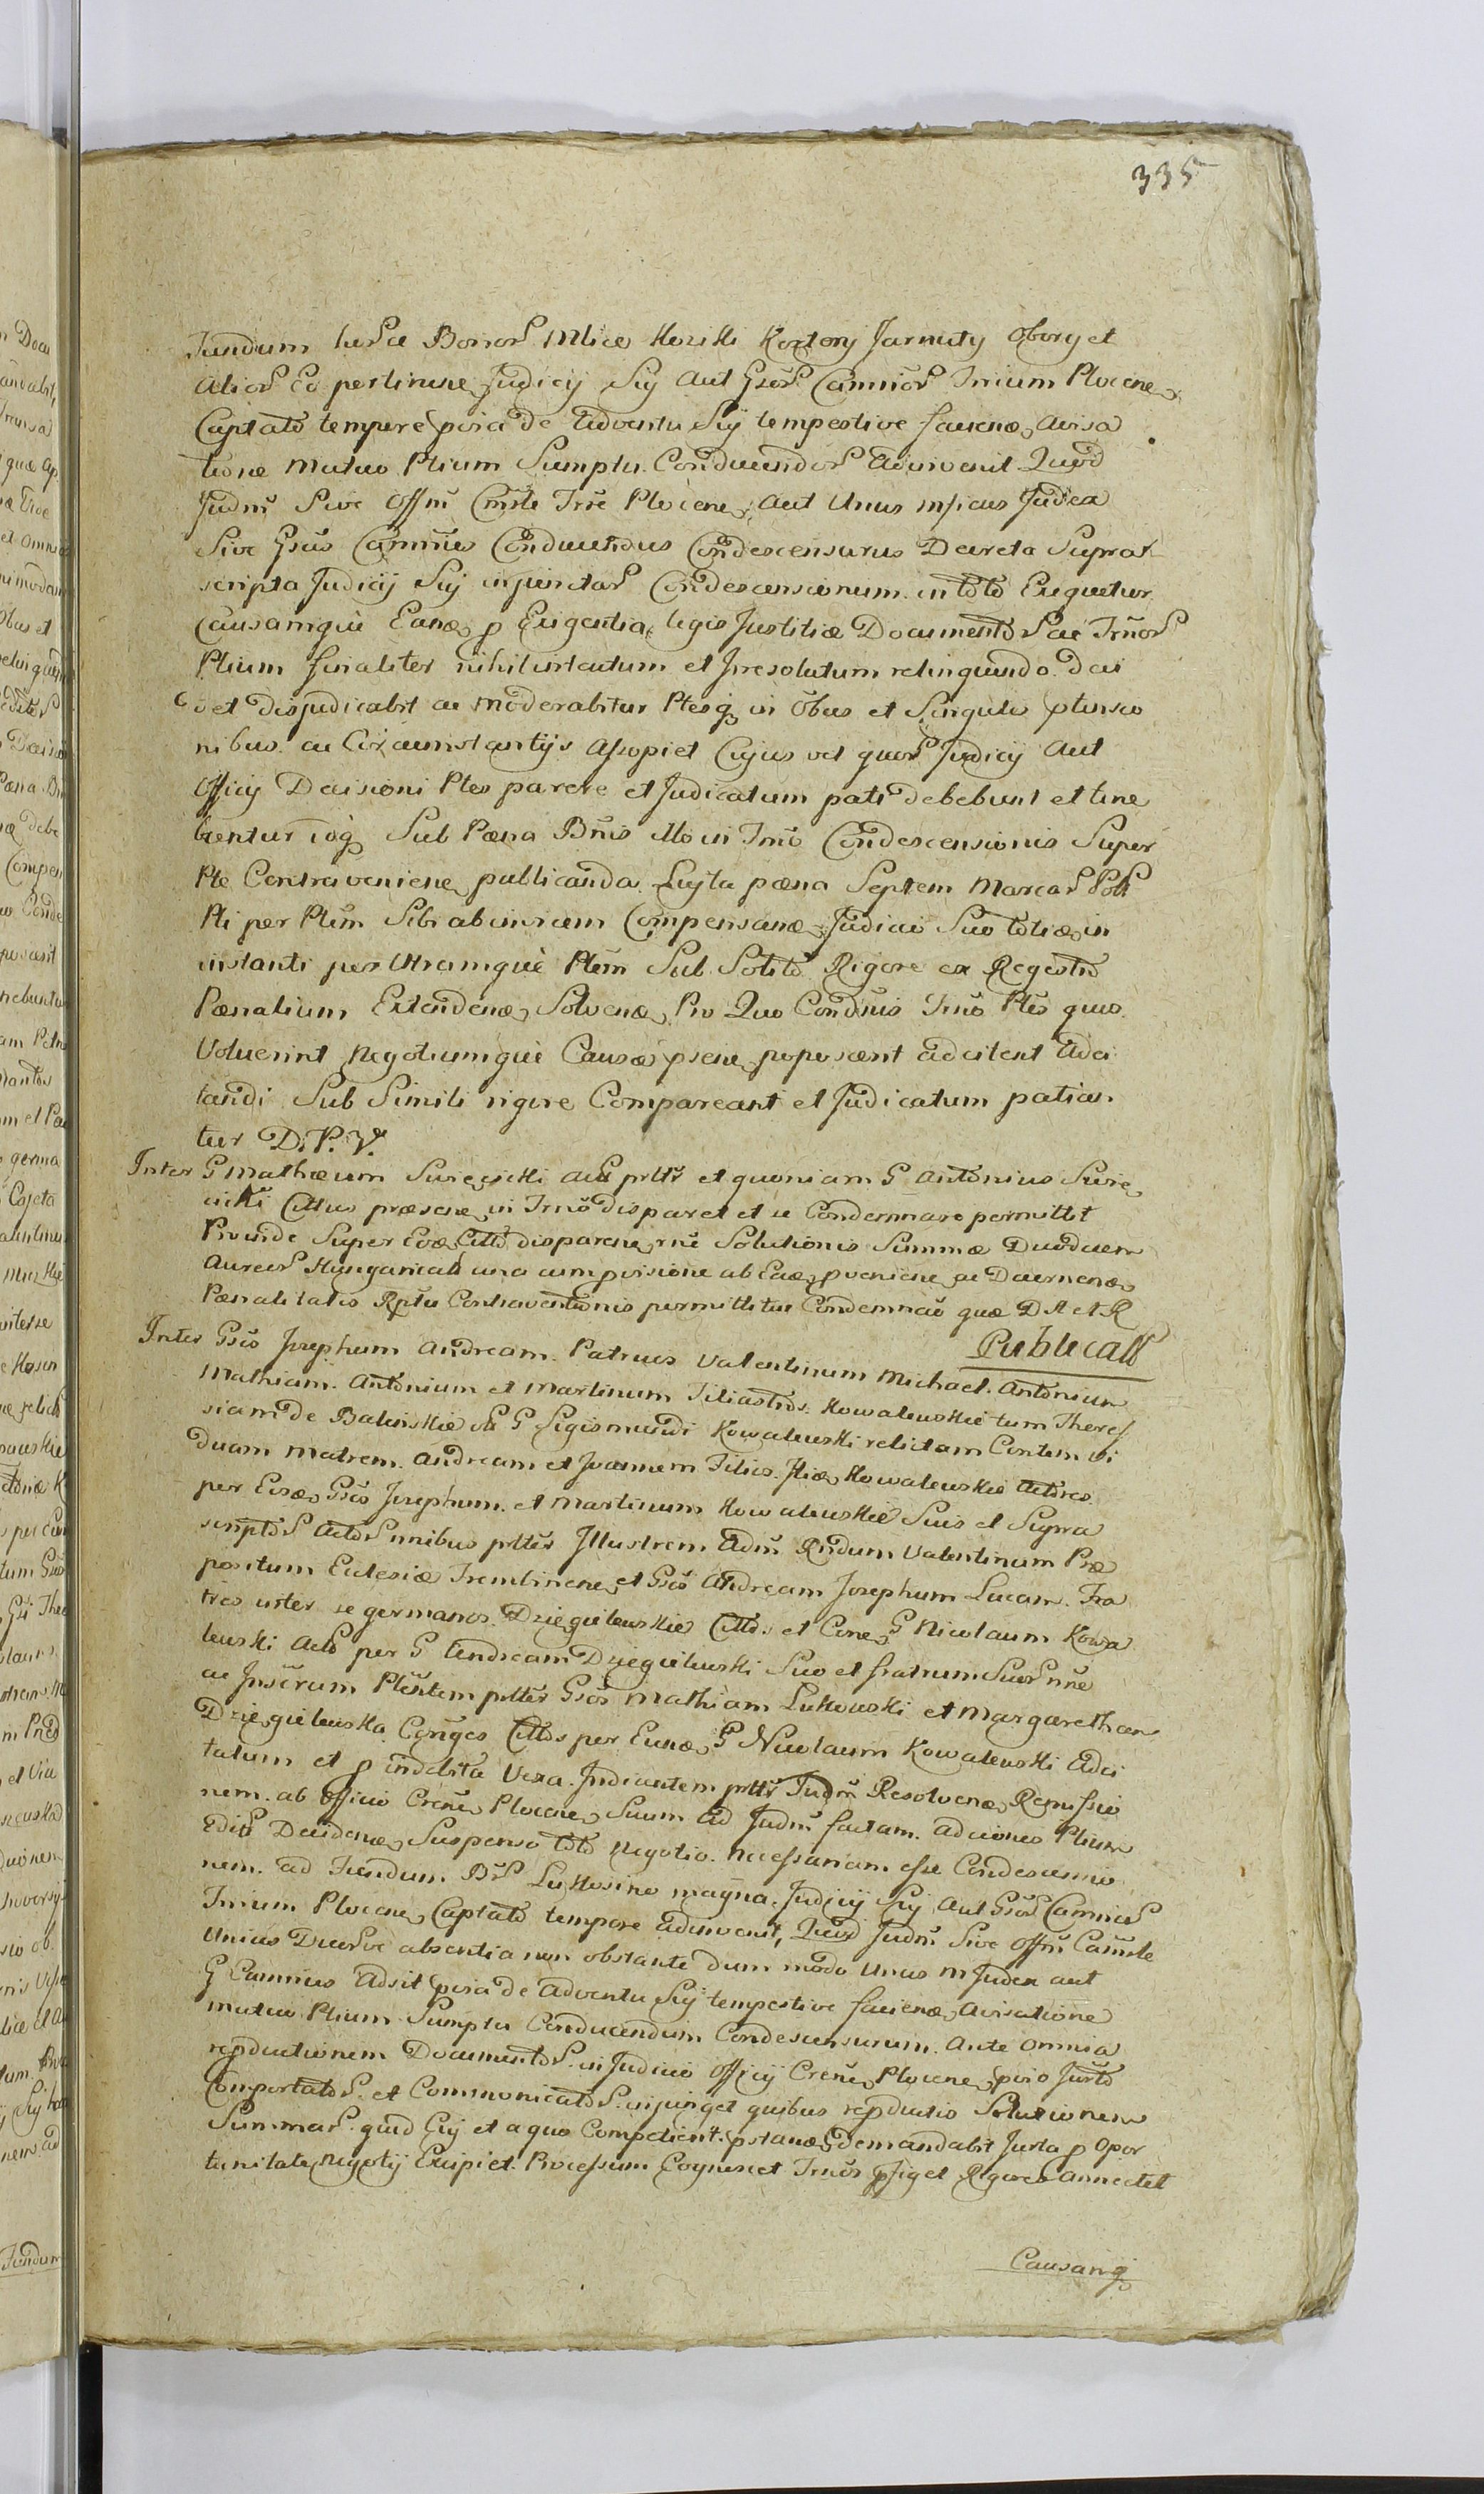 335
Fundum hosce Bonor Mlice Koziki Kortory Jarmuty Obory et
Alior Eo pertinene Judicij Sij Aut Gsor Camrior Trrium Plocene
Captato tempore pvia de Adventu Sij tempestive facienæ Avisa
tione mutuo Ptium Sumptu Conducendor Adinvenit Quod
Judm̃ Sive Offm̃ Cmste Trre Plocene Aut Unus Judex
Sive Gsus Camrius Conducendus Condescensurus Decreta Supra
scripta Judicij Sij injunctar Condescensionum in toto Exequetur
Causamque Eanæ p Exigentia legis Justitiæ Documentor ac Trmor
Ptium finaliter nihil intactum et Irresolutum relinquendo Deci
det Disjudicabit ac Moderabitur Ptesq in Obus et Singulis ptensio
nibus ac Circumstantijs Assopiet Cujus vel quor Judicij Aut
Officij Decisioni Ptes parere et Judicatum pati debebunt et tene
buntur ioq Sub Pœna Bnis Illo in Trmo Condescensionis Super
Pte Contraveniene publicanda Luijta pœna Septem Marcar Pol
Pti per Ptem Sibi abinvicem Compensanæ Judicio Suo totiæ in
instanti per Utramque Ptem Sub Solito Rigore ex Regestro
Pœnalium Extendenæ Solvenæ Pro Quo Condnis Trmo Ptes quos
Voluerint Negotiumque Causæ psene poposcerit adcitent Adci
tandi Sub Simili rigore Compareant et Judicatum patian
tur D.P.V.
Inter G Mathæum Swięcicki Act prltr et quoniam G Antonius Swię
cicki Cittus præsene in Trmo disparet et se Condemnare permittit
Proinde Super Eoæ Citto disparene rne Solutionis Summæ Duodecim
Aureor Hungarical una cum pvisione ab Eaæ pveniene ac Decernenæ
Pœnalitatis Rptu Contraventionis permittitur Condemnao quæ D A et R
Publicatt
Inter Gsos Josephum Andream Patruos Valentinum Michael Antonium
Mathiam Antonium et Martinum Filiastros Kowalewskie tum There
siam de Balinskie olī G Sigismundi Kowalewski relictam Contem Vi
duam Matrem Andream et Joannem Filios Itiæ Kowalewskie Actores
per Eosæ Gsos Josephum et Martinum Kowalewskie Suis et Supra
scriptor Actor nnibus prltes Illustrem Adm̃ Rndum Valentinum Præ
positum Eclesiæ Trembinene et Gsos Andream Josephum Lucam Fra
tres inter se germanos Dzięgielewskie Cittos et Cene G Nicolaum Kowa
lewski Acto per G Andream Dzięgielewski Suo et fratrum Suor nne
ac Inscrum Ptentem prltes Gsos Mathiam Łukowski et Margaretham
Dzięgielewska Conjges Cittos per Eunæ G Nicolaum Kowalewski Adci
tatum et p indebita Vexa Indicantem prltr Judm̃ Resolvenæ Remissio
nem ab Officio Crene Plocene Suum Ad Judm̃ factam Adciones Ptium
Edit Decidenæ Suspenso toto Negotio necessariam esse Condescensio
nem ad Fundum Br Łukosino magna Judicij Sij Aut Gsor Camrior
Trrium Plocene Captato tempore Adinvenit, Quod Judm̃ Sive Offm̃ Camste
Unius Duorve absentia non obstante dummodo Unus Judex aut
G Camrius Adsit pvia de Adventu Sij tempestive facienæ Avisatione
mutuo Ptium Sumptu Conducendum Condescensurum Ante Omnia
repductionem Documentor in Judicio Officij Crene Plocene pvio Jurto
Comportator et Communicator injunget quibus repductis Solutionem
Summar quid Cuj et a quo Competierit pstanæ demandabit Jurta p Opor
tunitate Negotij Excipiet Processum Cognoscet Trmos pfiget Rigores annectet
Causamq